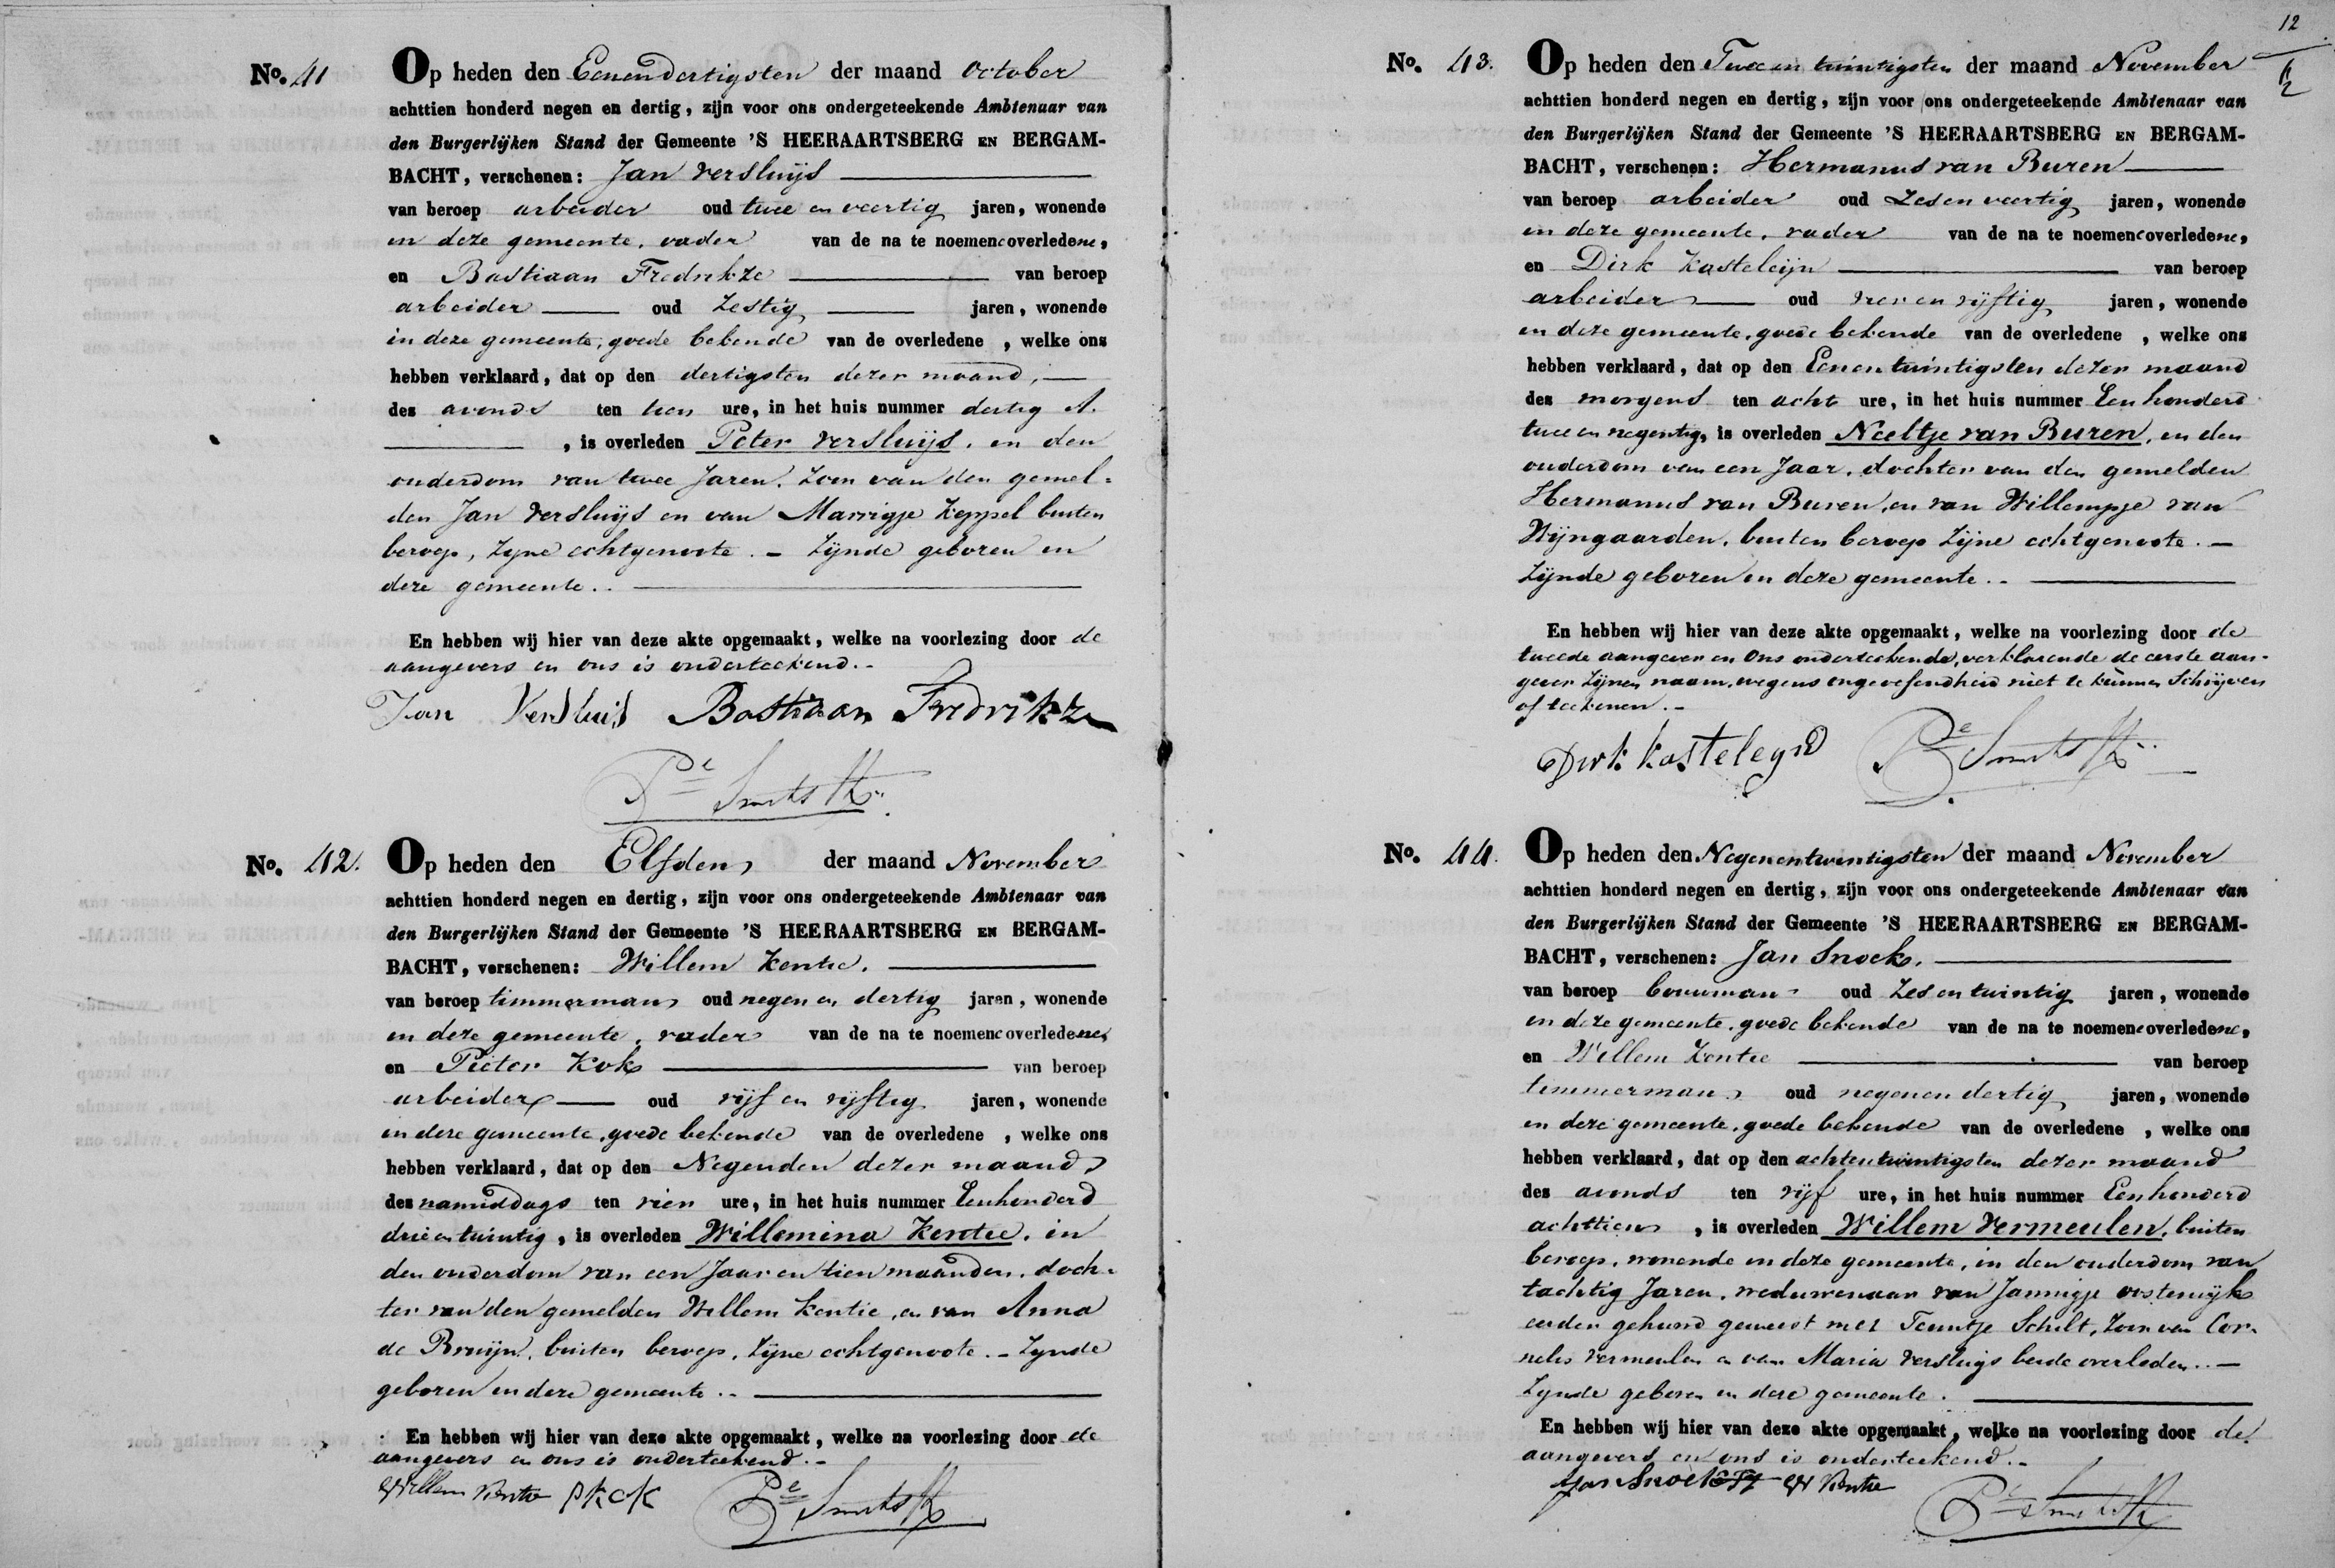 No. 41 Op heden den Eenendertigsten der maand October
achttien honderd negen en dertig, zijn voor ons ondergeteekende Ambtenaar van
den Burgerlijken Stand der Gemeente 'S HEERAARTSBERG EN BERGAM-
BACHT, verschenen: Jan Versluijs
van beroep arbeider oud twee en veertig jaren, wonende
in deze gemeente, vader van de na te noemen overledene,
en Bastiaan Fredrikze van beroep
arbeider oud Zestig jaren, wonende
in deze gemeente, goede bekende van de overledene, welke ons
hebben verklaard, dat op den dertigsten dezer maand,
des avonds ten tien ure, in het huis nummer dertig A.
, is overleden Peter Versluijs, in den
ouderdom van twee Jaren. Zoon van den gemel-
den Jan Versluijs en van Marrigje Keppel buiten
beroep, Zijne echtgenoote. - Zijnde geboren in
deze gemeente.
En hebben wij hier van deze akte opgemaakt, welke na voorlezing door de
aangevers en ons is onderteekend.
Jan Versluis Bastiaan Fredrikze
Pe Smits
No. 42. Op heden den Elfden der maand November
achttien honderd negen en dertig, zijn voor ons ondergeteekende Ambtenaar van
den Burgerlijken Stand der Gemeente 'S HEERAARTSBERG EN BERGAM-
BACHT, verschenen: Willem Kentie.
van beroep timmerman oud negen en dertig jaren, wonende
in deze gemeente, vader van de na te noemen overledene,
en Pieter Kok van beroep
arbeider oud vijf en vijftig jaren, wonende
in deze gemeente, goede bekende van de overledene, welke ons
hebben verklaard, dat op den Negenden dezer maand
des namiddags ten vier ure, in het huis nummer Eenhonderd
drie en twintig, is overleden Willemina Kentie, in
den ouderdom van een Jaar en tien maanden, doch-
ter van den gemelden Willem Kentie, en van Anna
de Bruijn, buiten beroep, Zijne echtgenoote. - Zijnde
geboren in deze gemeente.
En hebben wij hier van deze akte opgemaakt, welke na voorlezing door de
aangevers en ons is onderteekend.
Willem Kentie P Kok Pe Smits
12
No. 43. Op heden den Twee en twintigsten der maand November
achttien honderd negen en dertig, zijn voor ons ondergeteekende Ambtenaar van
den Burgerlijken Stand der Gemeente 'S HEERAARTSBERG EN BERGAM-
BACHT, verschenen: Hermanus van Buren
van beroep arbeider oud Zes en veertig jaren, wonende
in deze gemeente, vader van de na te noemen overledene,
en Dirk Kasteleijn van beroep
arbeider oud vier en vijftig jaren, wonende
in deze gemeente, goede bekende van de overledene, welke ons
hebben verklaard, dat op den Eenentwintigsten dezer maand
des morgens ten acht ure, in het huis nummer Een honderd
twee en negentig, is overleden Neeltje van Buren, in den
ouderdom van een Jaar, dochter van den gemelden
Hermanus van Buren, en van Willempje van
Wijngaarden, buiten beroep Zijne echtgenoote.
Zijnde geboren in deze gemeente.
En hebben wij hier van deze akte opgemaakt, welke na voorlezing door de
tweede aangever en Ons onderteekend, verklarende de eerste aan-
gever Zijnen naam, wegens ongeoefendheid niet te kunnen Schrijven
of teekenen.
Dirk Kasteleyn Pe Smits
No. 44. Op heden den Negenentwintigsten der maand November
achttien honderd negen en dertig, zijn voor ons ondergeteekende Ambtenaar van
den Burgerlijken Stand der Gemeente 'S HEERAARTSBERG EN BERGAM-
BACHT, verschenen: Jan Snoek.
van beroep bouwman oud Zes en twintig jaren, wonende
in deze gemeente, goede bekende van de na te noemen overledene,
en Willem Kentie van beroep
timmerman oud negen en dertig jaren, wonende
in deze gemeente, goede bekende van de overledene, welke ons
hebben verklaard, dat op den achtentwintigsten dezer maand
des avonds ten vijf ure, in het huis nummer Eenhonderd
achttien, is overleden Willem Vermeulen, buiten
beroep, wonende in deze gemeente, in den ouderdom van
tachtig Jaren, weduwenaar van Jannigje oostewijk
eerder gehuwd geweest met Teuntje Schilt, Zoon van Cor-
nelis Vermeulen en van Maria Versluijs beide overleden.
Zijnde geboren in deze gemeente.
En hebben wij hier van deze akte opgemaakt, welke na voorlezing door de
aangevers en ons is onderteekend.
Jan Snoek W Kentie
Pe Smits